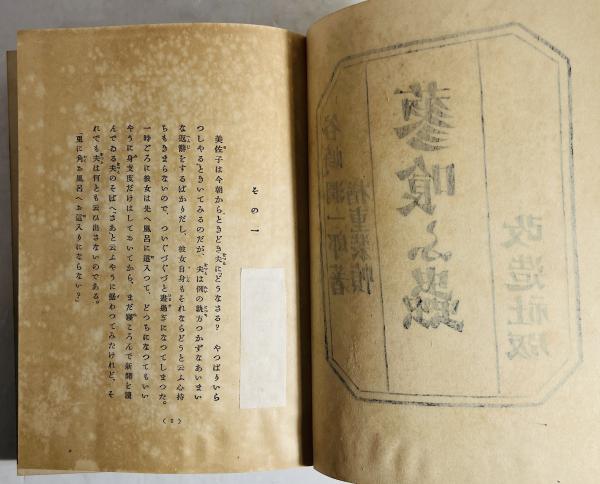 その一
美佐子は今朝からときどき夫に「どうなさる? やつぱりいら
つしやる?」ときいてみるのだが、夫は例の孰方つかずなあいまい
な返辭をするばかりだし、彼女自身もそれならどうと云ふ心持
ちもきまらないので、ついぐづぐづと晝過ぎになつてしまつた。
一時ごろに彼女は先へ風呂に這入つて、どつちになつてもいい
やうに身支度だけはしておいてから、まだ寢ころんで新聞を讀
んでゐる夫のそばへ「さあ」と云ふやうに据わつてみたけれど、そ
れでも夫は何とも云ひ出さないのである。
「兎に角お風呂へお這入りにならない?」
谷崎潤一郎著
楢重装幀
蓼喰ふ蟲
改造社版